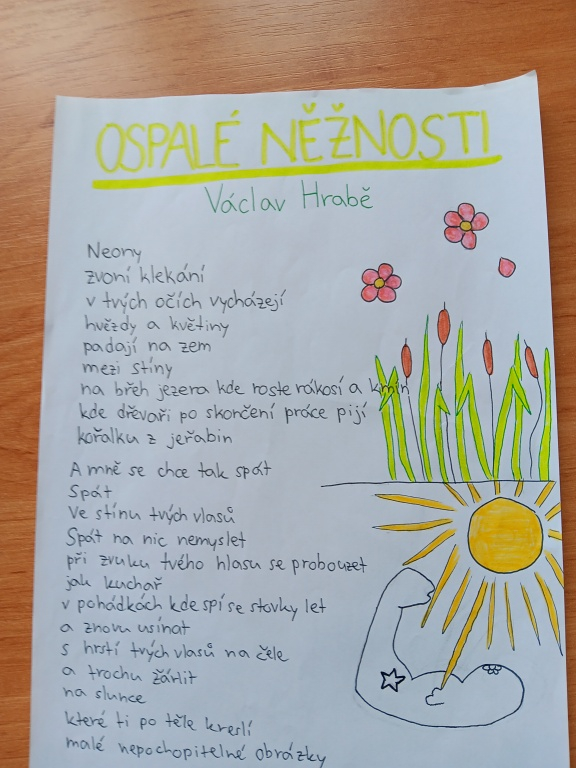 OSPALÉ NĚŽNOSTI
Václav Hrabě
Neony
zvoní klekání
v tvých očích vycházejí
hvězdy a květiny
padají na zem
mezi stíny
na břeh jezera kde roste rákosí a kmín
kde dřevaři po skončení práce pijí
kořalku z jeřabin
A mně se chce tak spát
Spát
Ve stínu tvých vlasů
Spát na nic nemyslet
při zvuku tvého hlasu se probouzet
jak kuchař
v pohádkách kde spí se stovky let
a znovu usínat
s hrstí tvých vlasů na čele
a trochu žárlit
na slunce
které ti po těle kreslí
malé nepochopitelné obrázky